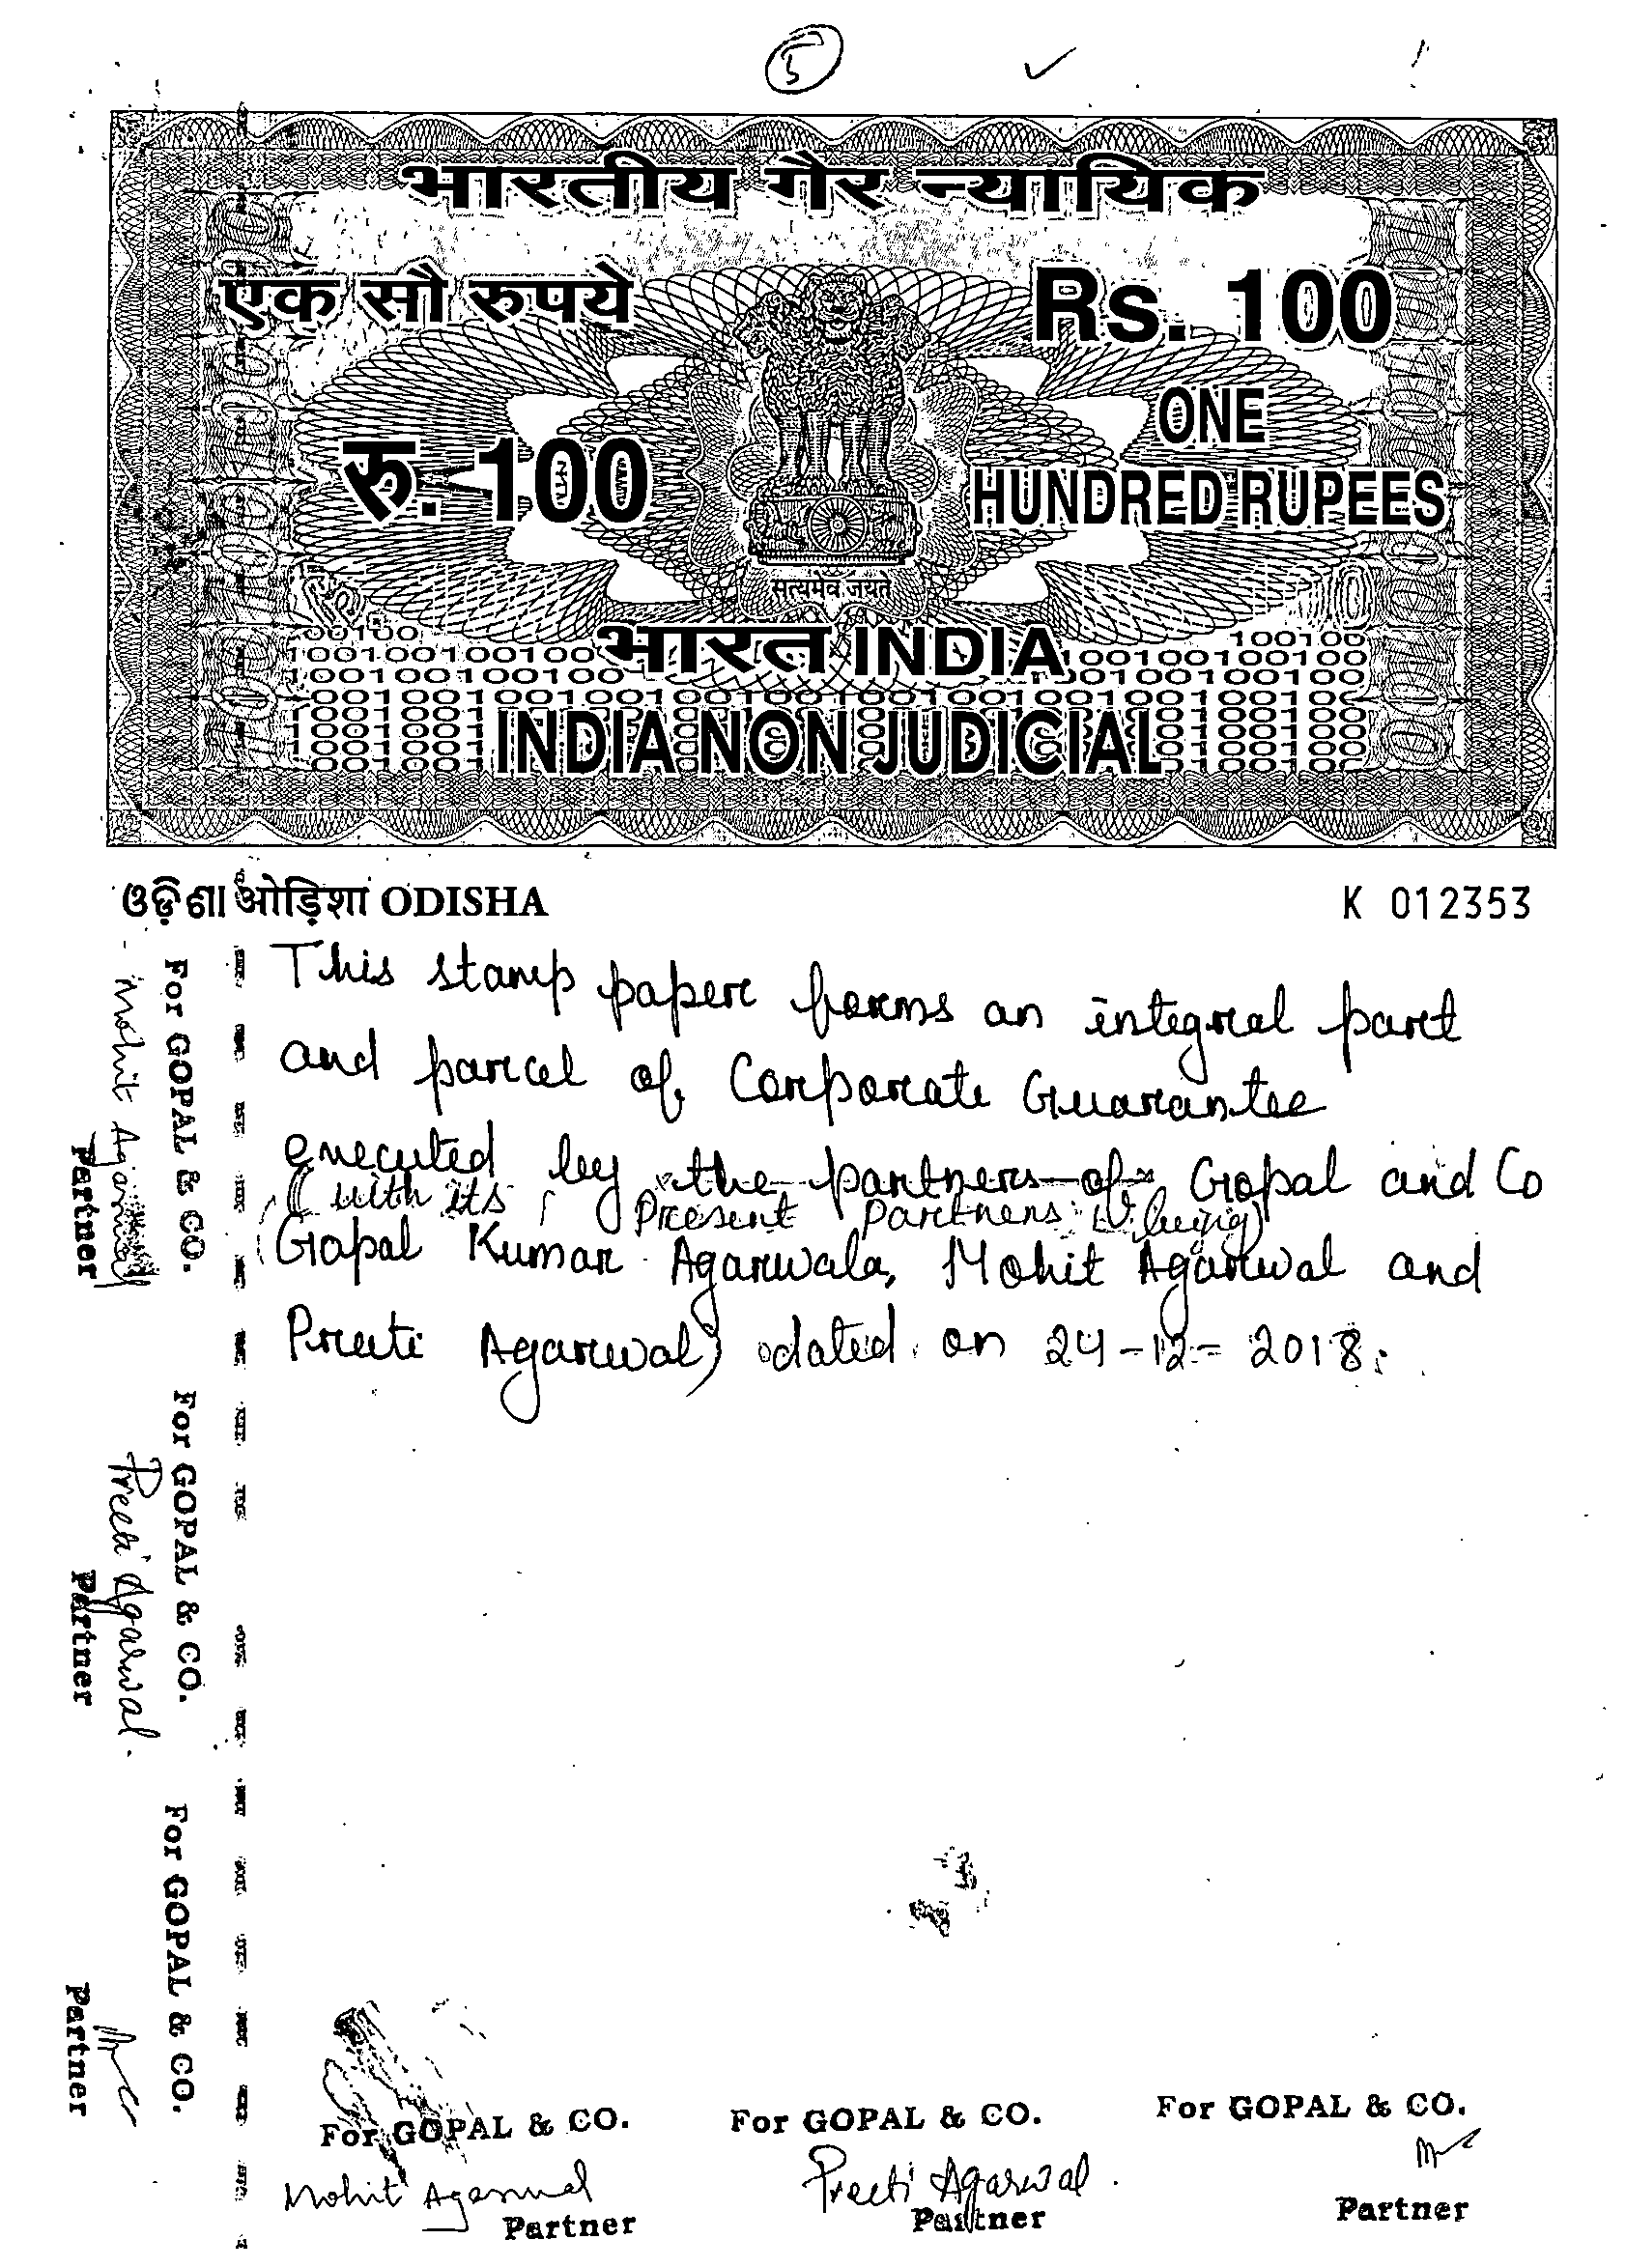 5
भारतीय गैर न्यायिक
एक सौ रुपये
Rs. 100
रु. 100
ONE
HUNDRED RUPEES
सत्यमेव जयते
भारत INDIA
INDIA NON JUDICIAL
ଓଡ଼ିଶା ओड़िशा ODISHA
K 012353
This stamp paper forms an integral part
and parcel of Corporate Guarantee
executed by the partners of Gopal and Co
(with its Present Partners being
Gopal Kumar Agarwala, Mohit Agarwal and
Preeti Agarwal) dated on 24-12-2018.
For GOPAL & CO.
Mohit Agarwal
Partner
For GOPAL & CO.
Preeti Agarwal.
Partner
For GOPAL & CO.
Partner
For GOPAL & CO.
Mohit Agarwal
Partner
For GOPAL & CO.
Preeti Agarwal.
Partner
For GOPAL & CO.
Partner